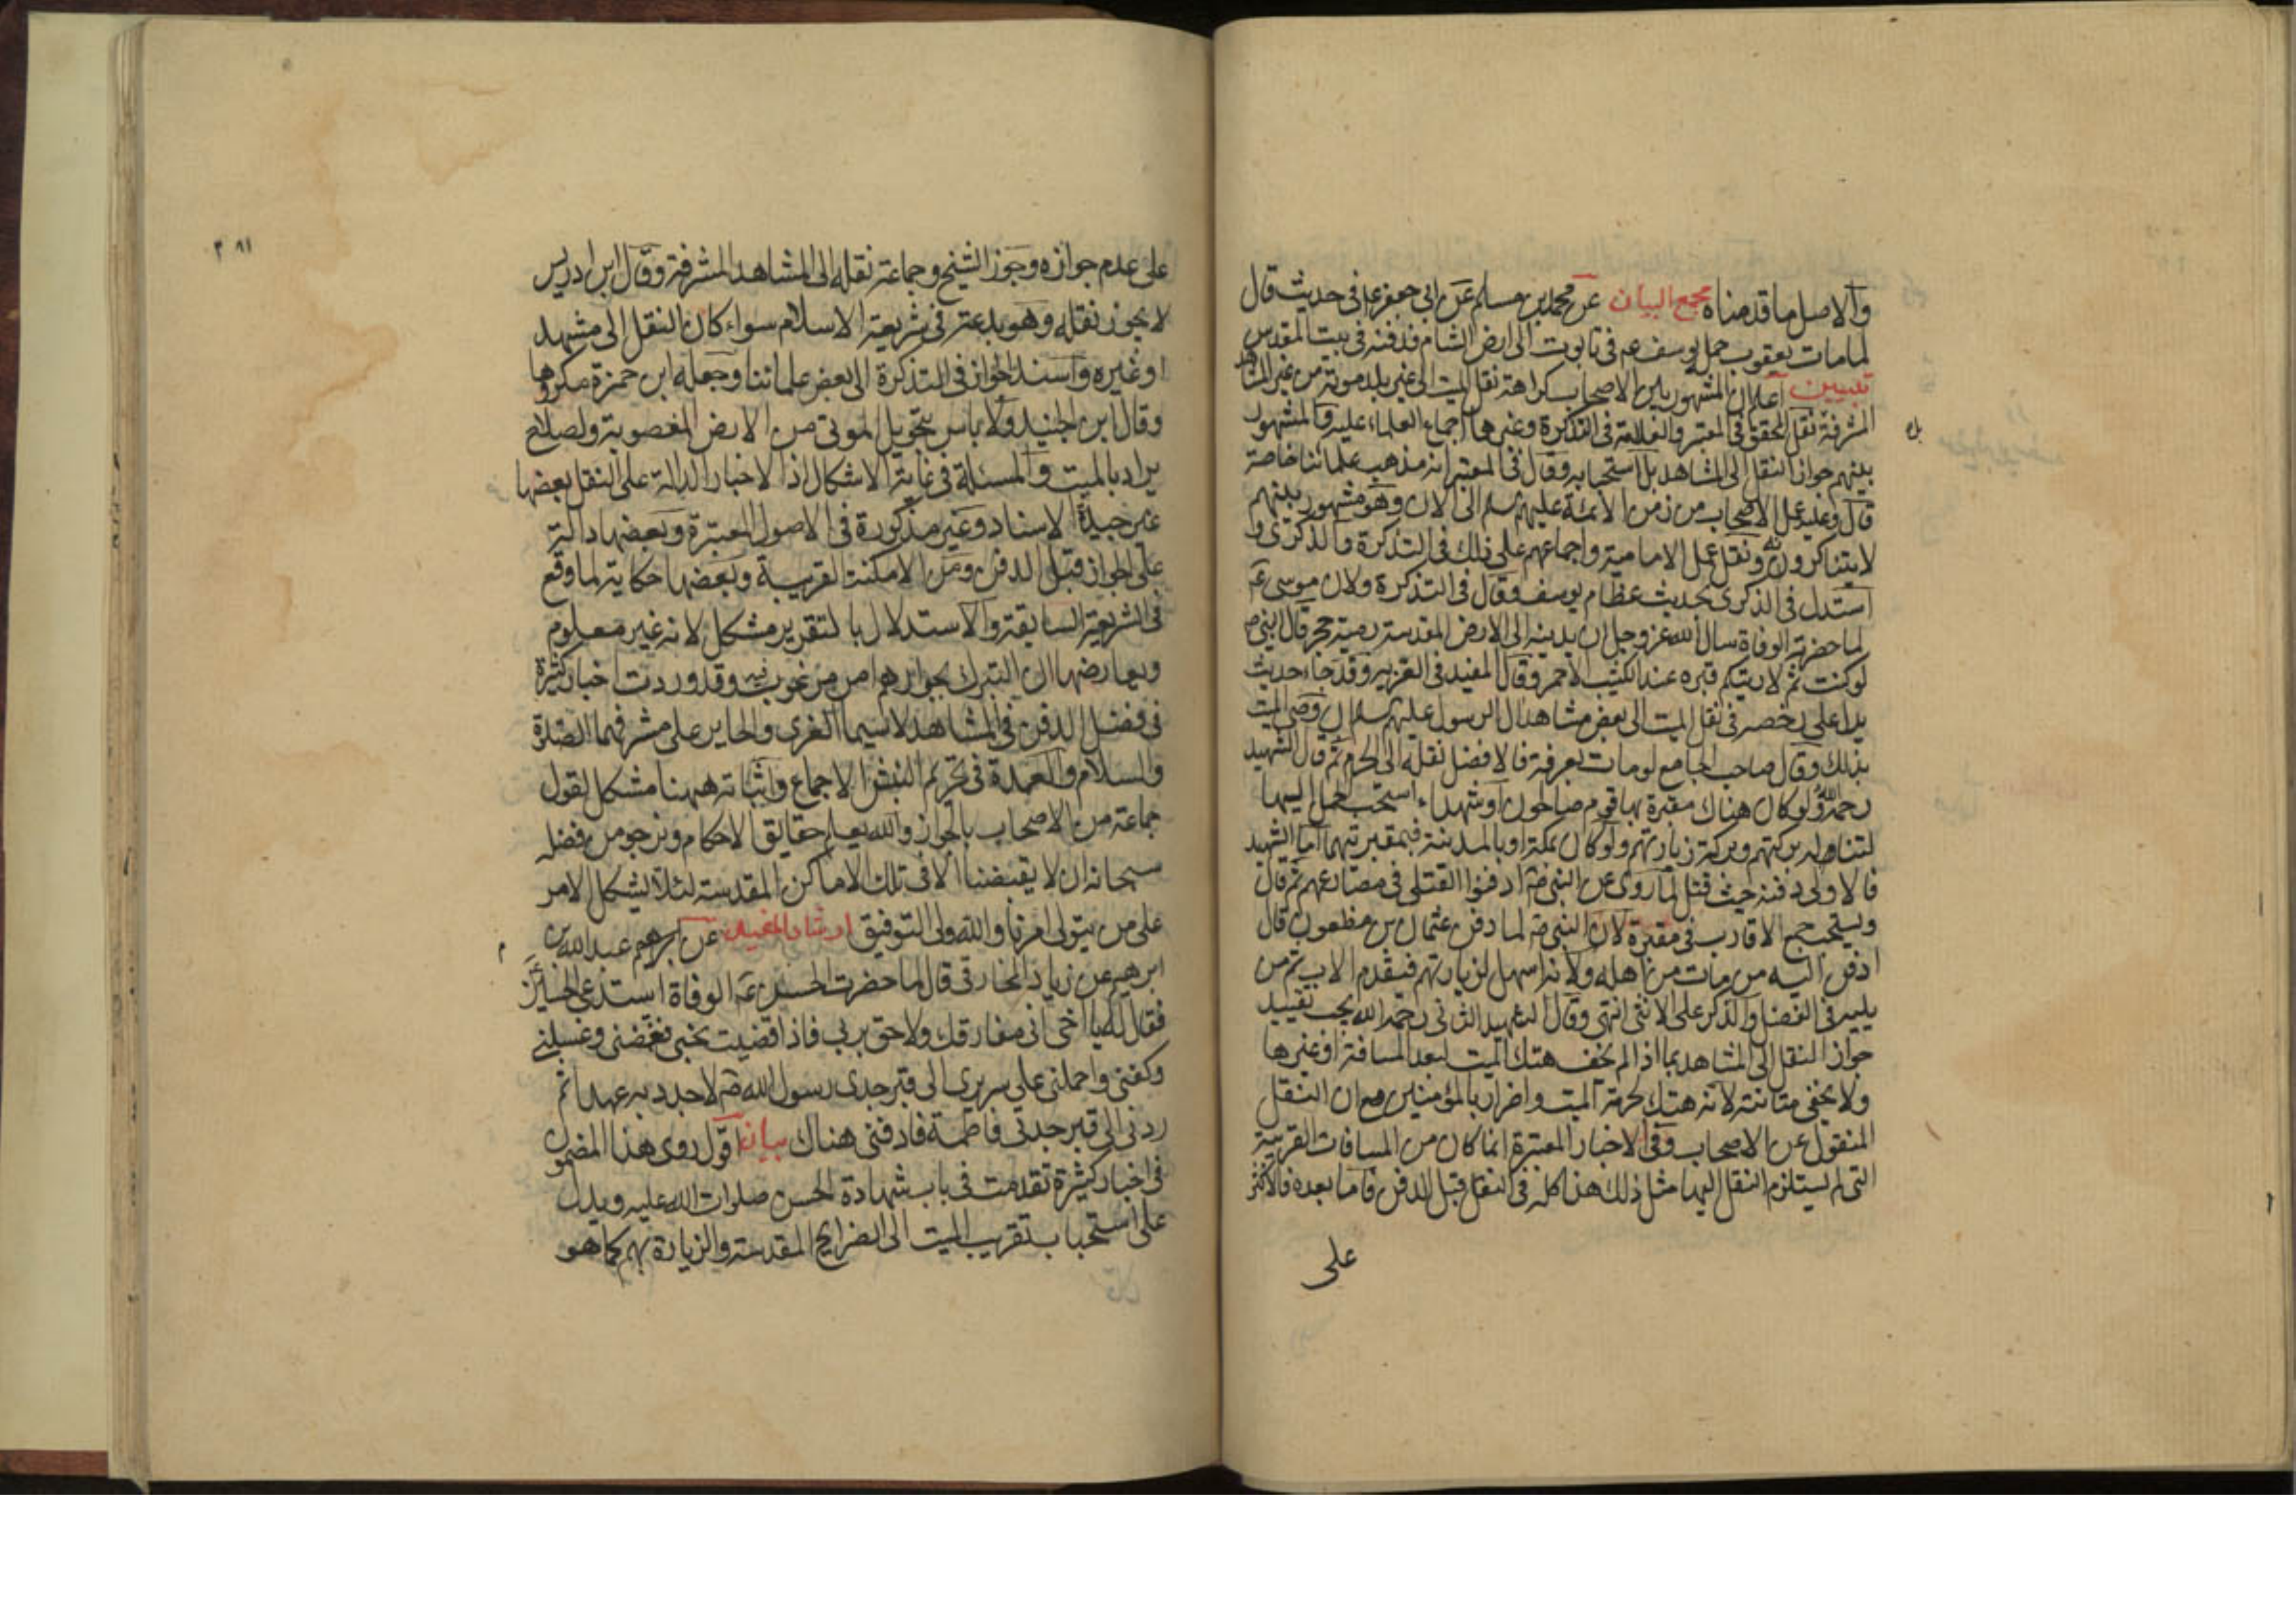 والاصل ما قدمناه مجمع البيان عن محمد بن مسلم عن ابي جعفر ع في حديث قال
لما مات يعقوب حمل يوسف ع في تابوت الى ارض الشام فدفنه في بيت المقدس
تبيين اعلم ان المشهور بين الاصحاب كراهة نقل الميت الى غير بلد موته من غير المشاهد
المشرفة نقل المحقق في المعتبر والعلامة في التذكرة وغيرهما اجماع العلماء عليه والمشهور
بينهم جواز النقل الى المشاهد بل استحبابه وقال في المعتبر انه مذهب علمائنا خاصة
قال وعليه عمل الاصحاب من زمن الائمة عليهم سلم الى الان وهو مشهور بينهم
لا يتناكرونه ونقل عمل الامامية واجماعهم على ذلك في التذكرة والذكرى و
استدل في الذكرى بحديث عظام يوسف وقال في التذكرة ولان موسى ع
لما حضرته الوفاة سال الله عز وجل ان يدنيه الى الارض المقدسة رمية حجر قال النبي ص
لو كنت ثم لاريتكم قبره عند الكثيب الاحمر وقال المفيد في الغرية وقد جاء حديث
يدل على رخصه في نقل الميت الى بعض مشاهد ال الرسول عليهم سلم ان وصى الميت
بذلك وقال صاحب الجامع لو مات بعرفة فالافضل نقله الى الحرم ثم قال الشهيد
رحمه الله ولو كان هناك مقبرة بها قوم صالحون او شهداء استحب الحمل اليها
لتناله بركتهم وبركة زيارتهم ولو كان بمكة او بالمدينة فبمقبرتيهما اما الشهيد
فالاولى دفنه حيث قتل لما روى عن النبي ص ادفنوا القتلى في مصارعهم ثم قال
ويستحب جمع الاقارب في مقبرة لان النبي ص لما دفن عثمان بن مظعون قال
ادفن اليه من مات من اهله ولانه اسهل لزيارتهم فيقدم الاب ثم من
يليه في الفضل والذكر على الانثى انتهى وقال الشهيد الثاني رحمه الله يجب تقييد
جواز النقل الى المشاهد بما اذا لم يخف هتك الميت لبعد المسافة او غيرها
ولا يخفى متانته لانه هتك لحرمة الميت واضرار بالمؤمنين مع ان النقل
المنقول عن الاصحاب وفي الاخبار المعتبرة انما كان من المسافات القريبة
التي لم يستلزم النقل اليها مثل ذلك هذا كله في النقل قبل الدفن فاما بعده فالاكثر
على
٢٨١
على عدم جوازه وجوز الشيخ وجماعة نقله الى المشاهد المشرفة وقال ابن ادريس
لا يجوز نقله وهو بدعة في شريعة الاسلام سواء كان النقل الى مشهد
او غيره واسند الجواز في التذكرة الى بعض علمائنا وجعله ابن حمزة مكروها
وقال ابن الجنيد ولا باس بتحويل الموتى من الارض المغصوبة ولصلاح
يراد بالميت والمسئلة في غاية الاشكال اذ الاخبار الدالة على النقل بعضها
غير جيدة الاسناد وغير مذكورة في الاصول المعتبرة وبعضها دالة
على الجواز قبل الدفن ومن الامكنة القريبة وبعضها حكاية لما وقع
في الشريعة السابقة والاستدلال بالتقرير مشكل لانه غير معلوم
ويعارضها ان التبرك بجوارهم امر مرغوب فيه وقد وردت اخبار كثيرة
في فضل الدفن في المشاهد لاسيما الغرى والحاير على مشرفهما الصلوة
والسلام والعمدة في تحريم النبش الاجماع واثباته ههنا مشكل لقول
جماعة من الاصحاب بالجواز والله يعلم حقايق الاحكام ونرجو من فضله
سبحانه ان لا يقبضنا الا في تلك الاماكن المقدسة لئلا يشكل الامر
على من يتولى امرنا والله ولي التوفيق ارشاد المفيد عن ابرهيم عبد الله بن
ابرهيم عن زياد المخارقي قال لما حضرت الحسن ع الوفاة استدعى الحسين
فقال له يا اخي اني مفارقك ولاحق بربي فاذا قضيت نحبي فغمضني وغسلني
وكفني واحملني على سريري الى قبر جدي رسول الله ص لاجدد به عهدا ثم
ردني الى قبر جدتي فاطمة فادفني هناك بيان اقول روى هذا المضمون
في اخبار كثيرة تقدمت في باب شهادة الحسن صلوات الله عليه ويدل
على استحباب تقريب الميت الى الضرايح المقدسة والزيارة بهم كما هو